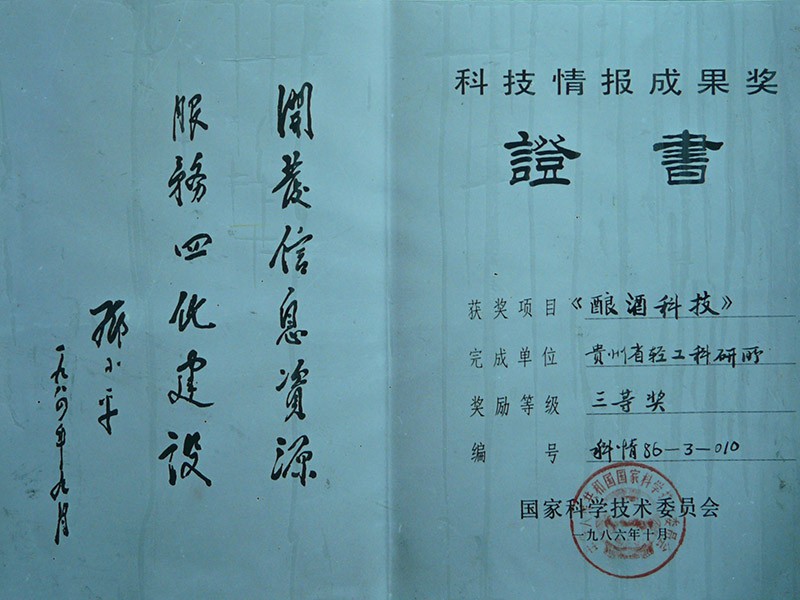 開发信息資源
服務四化建设
邓小平
一九八四年九月
科技情报成果奖
證書
获奖项目《酿酒科技》
完成单位 贵州省轻工科研所
奖励等级 三等奖
编号 科情86-3-010
国家科学技术委员会
一九八六年十月